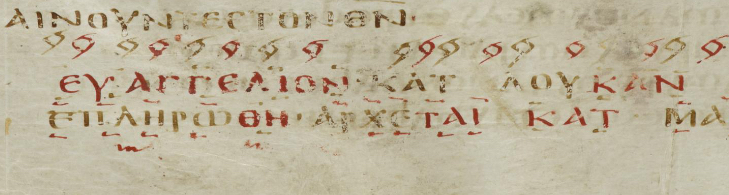 ΑΙΝΟΥΝΤΕϹΤΟΝΘΝ·
ΕΥΑΓΓΕΛΙΟΝ·ΚΑΤ ΛΟΥΚΑΝ
ΕΠΛΗΡΩΘΗ·ΑΡΧΕΤΑΙ ΚΑΤ ΜΑ